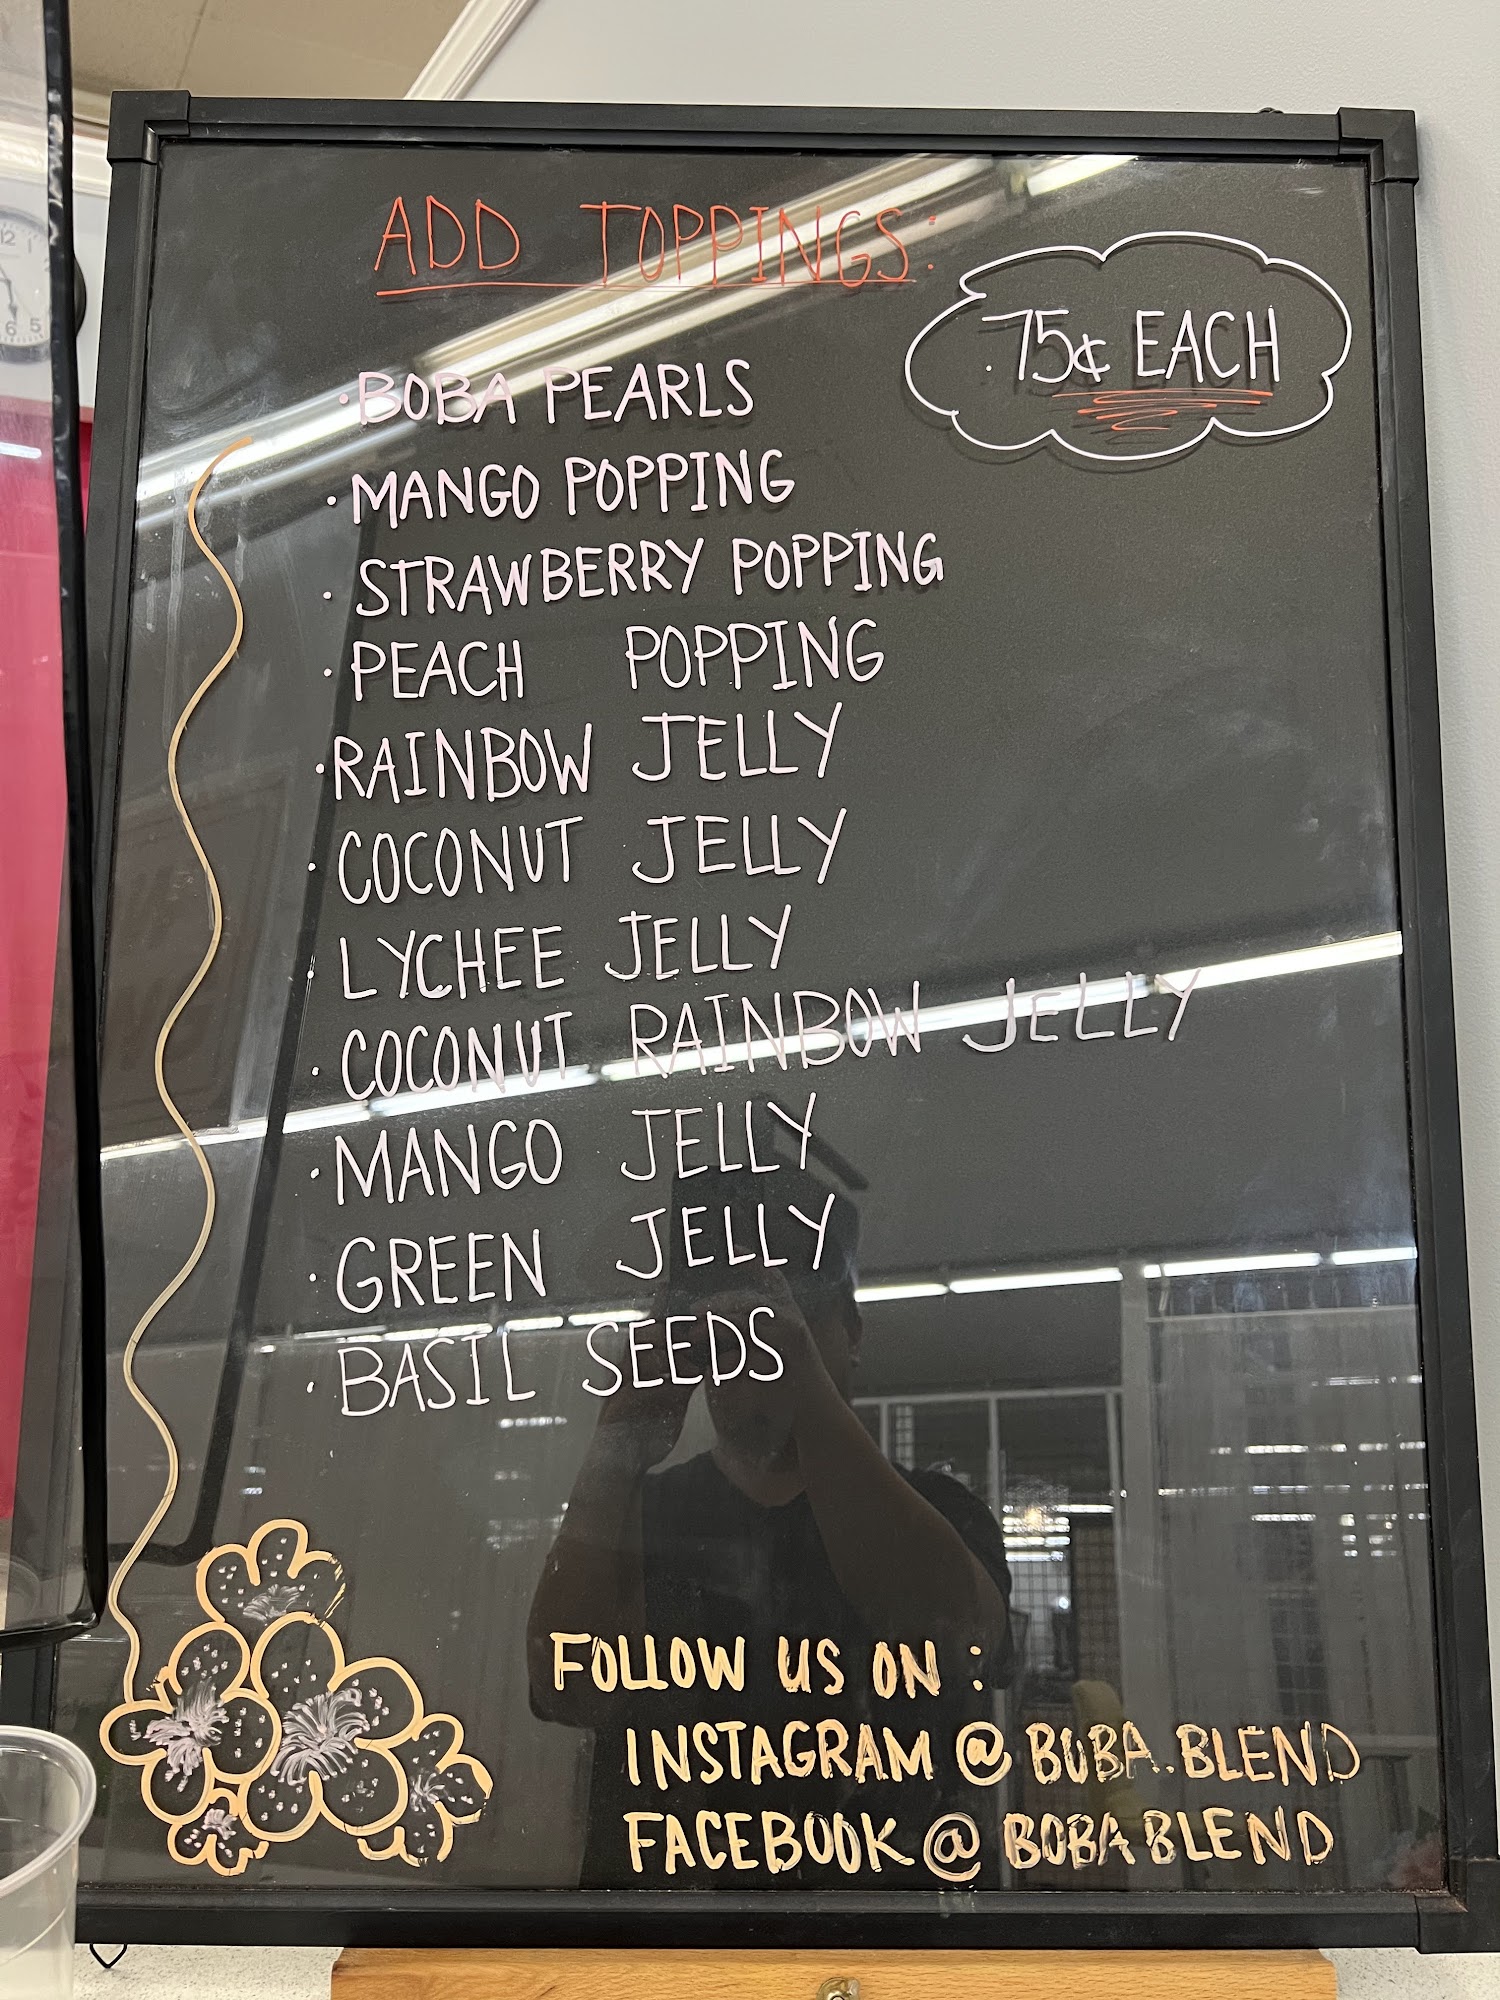 ADD TOPPINGS:
.75¢ EACH
· BOBA PEARLS
· MANGO POPPING
· STRAWBERRY POPPING
· PEACH POPPING
· RAINBOW JELLY
· COCONUT JELLY
· LYCHEE JELLY
· COCONUT RAINBOW JELLY
· MANGO JELLY
· GREEN JELLY
· BASIL SEEDS
FOLLOW US ON :
INSTAGRAM @ BOBA.BLEND
FACEBOOK @ BOBABLEND
12 1
6 5